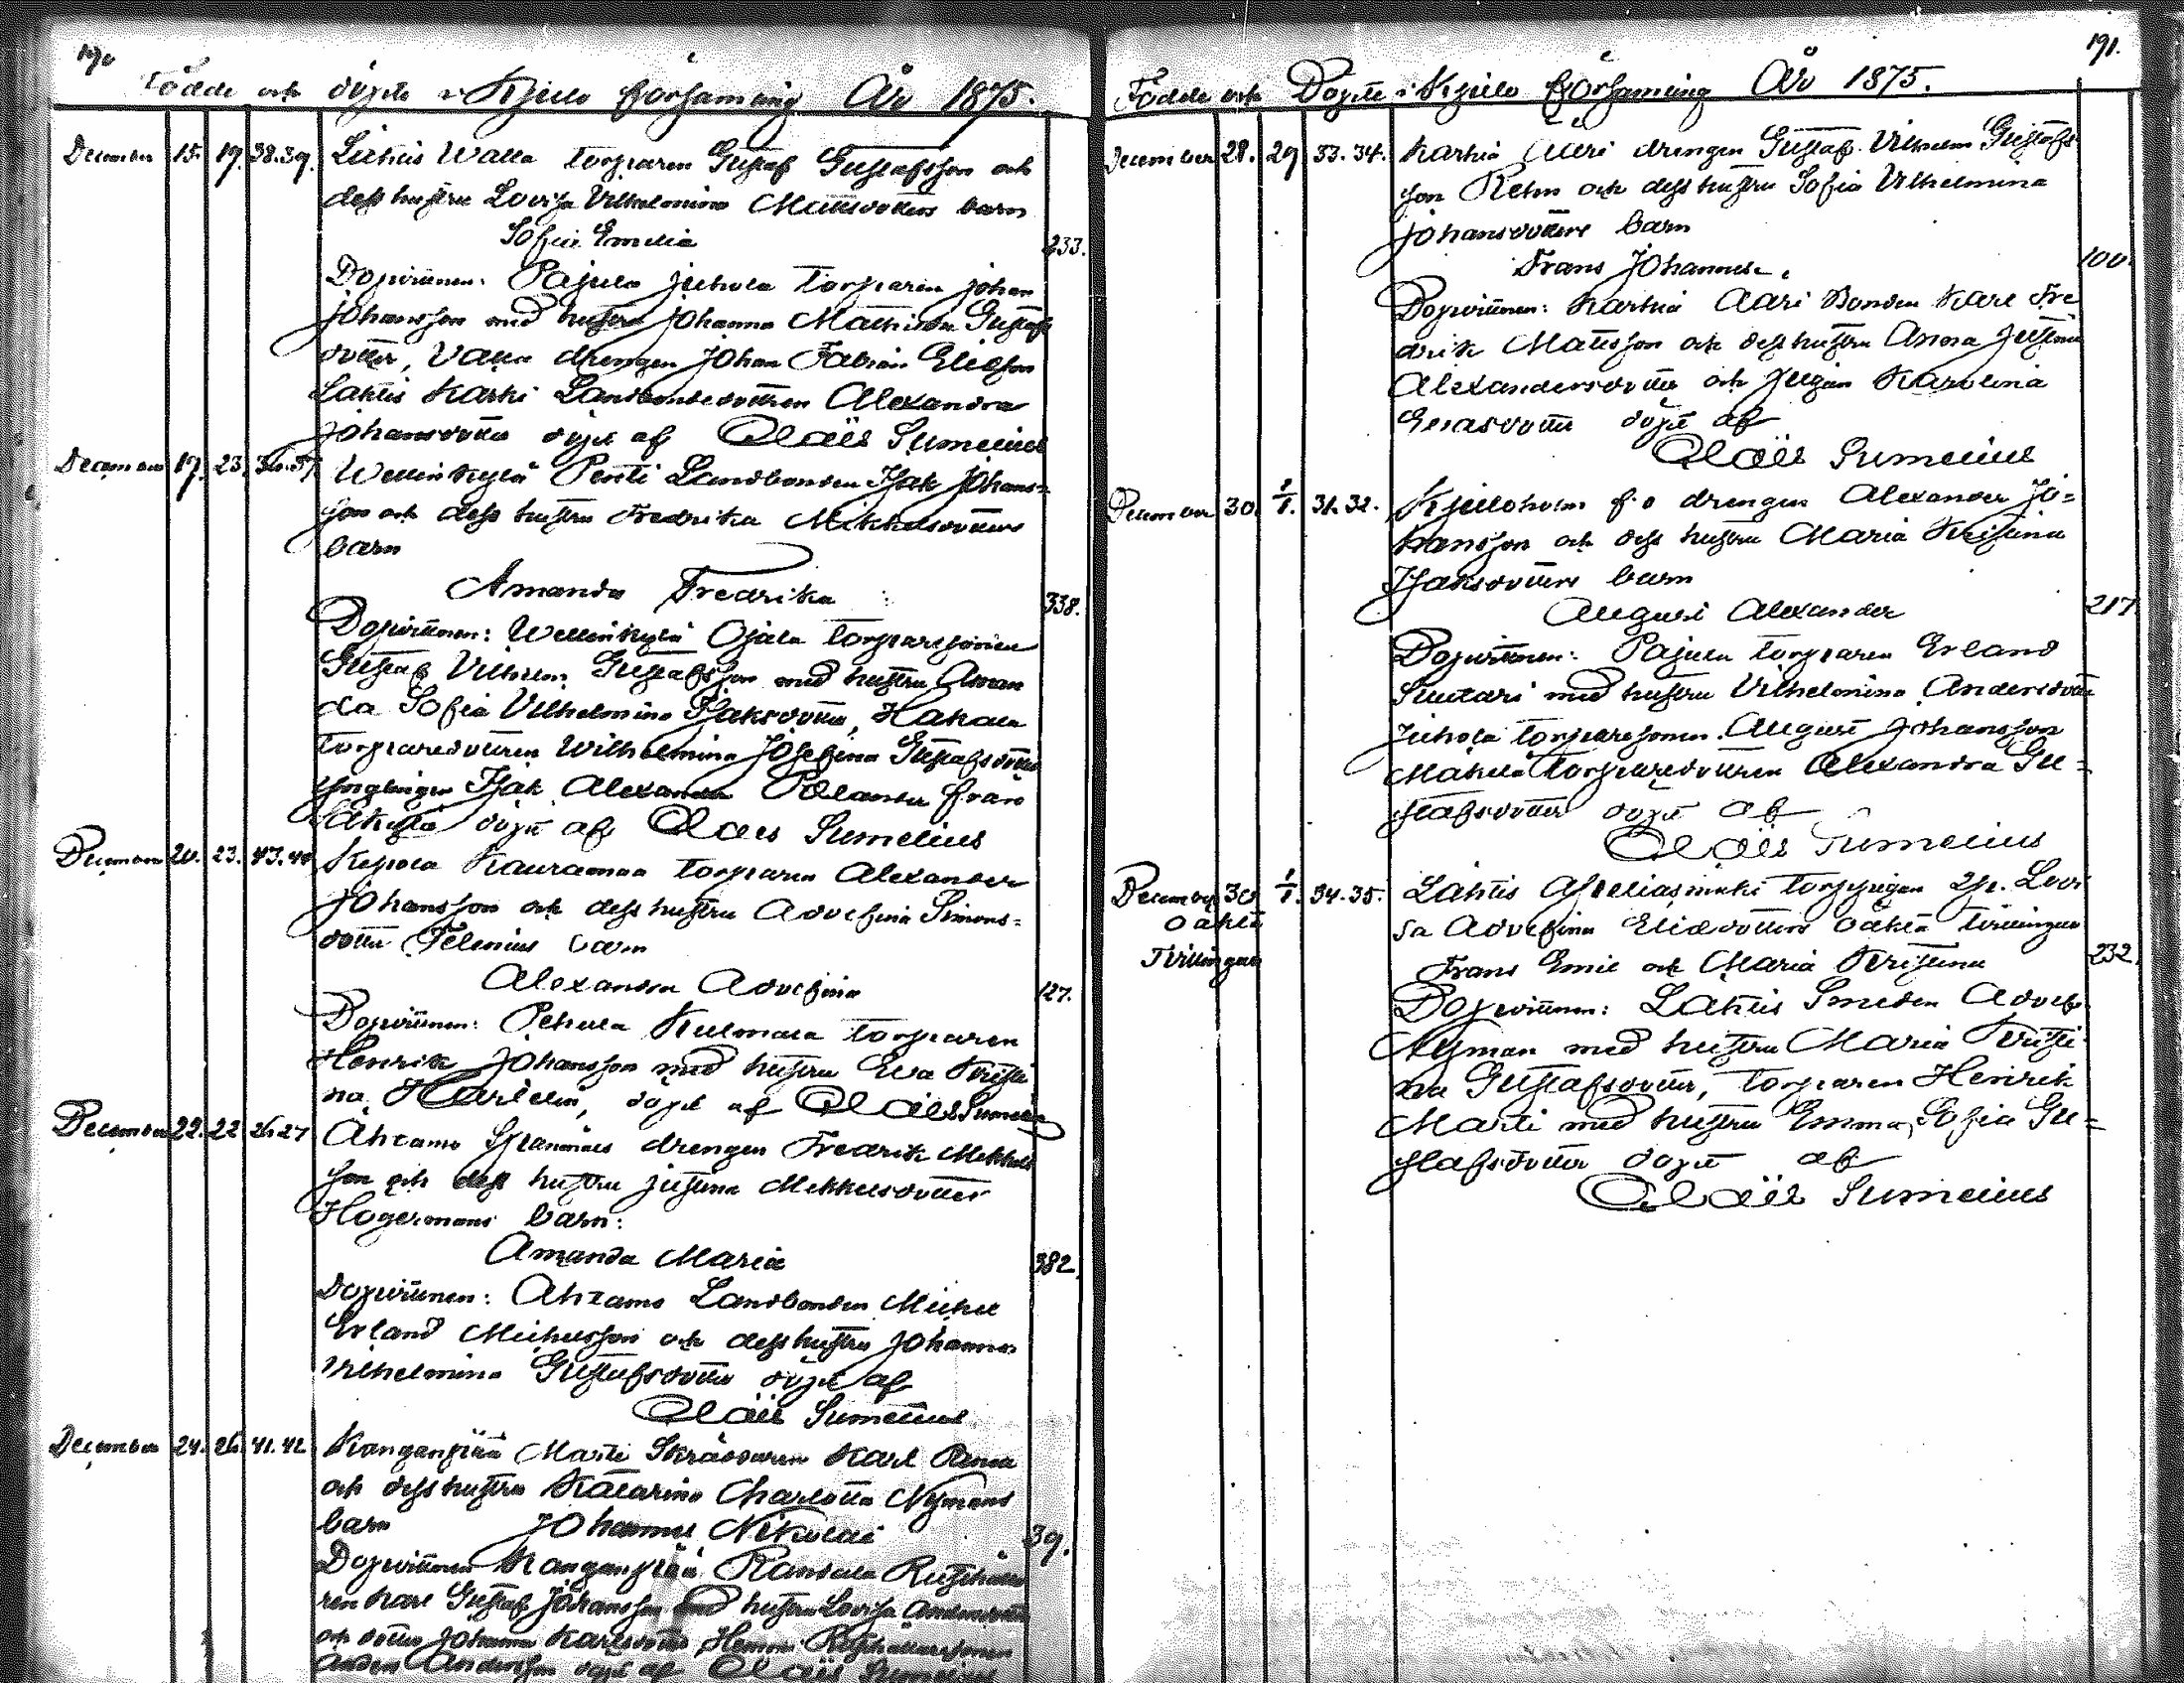 190
Födde och döpte i Kjulo församling År 1875.
December 15. 19. 38.39. Lähtis Walla torparen Gustaf Gustafsson och
dess hustru Lovisa Vilhelmina Mattsdotters barn
Sofia Emelia 233.
Dopvittnen: Pajula Juhola torparen Johan
Johansson med hustru Johanna Mathilda Gustafs
dotter, Valla drengen Johan Fabian Eliesson
Lähtis Karhi Landbondedottren Alexandra
Johansdotter döpt af Claës Sumelius
December 17. 23. 36.37. Wellinkylä Pentti Landbonden Isak Johans=
son och dess hustru Fredrika Mikkelsdotters
barn
Amanda Fredrika 338.
Dopvittnen: Wellinkylä Ojala torparesonen
Gustaf Vilhelm Gustafsson med hustru Aman
da Sofia Vilhelmina Isaksdotter, Hakala
torparedottren Wilhelmina Josefina Gustafsdotter
ynglingen Isak Alexander Polander från
Säkylä döpt af Claes Sumelius
December 20. 23. 43.44 Kepola Kauraman torparen Alexander
Johansson och dess hustru Adolfina Simons=
dotter Felenius barn
Alexandra Adolfina 127.
Dopvittnen: Pehula Kulmala torparen
Henrik Johansson med hustru Eva Kristi
na Harlelin, döpt af Claës Sumelius
December 22. 22 26.27 Ahtamo drengen Fredrik Mikkels
son och dess hustru Justina Mikkelsdotter
Hogermans barn:
Amanda Maria 382.
Dopvittnen: Ahtamo Landbonden Michel
Erland Michelsson och dess hustru Johanna
Vilhelmina Gustafsdotter döpt af
Claës Sumelius
December 24. 26. 41.42 Kanganpää Martti Skräddaren Karl
och dess hustru Katarina Charlotta Nymans
barn Johannes Nikolai 39.
Dopvittnen Kanganpää Rantala Rusthålla
ren Karl Gustaf Johansson med hustru Lovisa Andersdotter
och dotter Johanna Karlsdotter, Rusthållaresonen
Anders Andersson döpt af Claës Sumelius
191.
Födde och Döpte i Kjulo församling År 1875.
December 28. 29 33.34. Karhia Ääri drengen Gustaf Vilhelm Gustafs
son Rehn och dess hustru Sofia Vilhelmina
Johansdotters barn
Frans Johannes. 100.
Dopvittnen: Karhia Ääri Bonden Karl Fre
drik Matsson och dess hustru Anna Justina
Alexandersdotter och pigan Karolina
Eliasdotter döpt af
Claës Sumelius
December 30. 1/1. 31.32. Kjuloholm f.d drengen Alexander Jo=
hansson och dess hustru Maria Kristina
Isaksdotters barn
August Alexander 217
Dopvittnen: Pajula torparen Erland
Suutari med hustru Vilhelmina Andersdotter
Juhola torparesonen August Johansson
Mäkelä torparedottren Alexandra Gu=
stafsdotter döpt af
Claës Sumelius
December 30 1/1. 34.35. Lähtis torppigan Lovi
oäkta sa Adolfina Eliedotters oäkta tvillingar
Tvillingar Frans Emil och Maria Kristina 232.
Dopvittnen: Lähtis Smeden Adolf
Nyman med hustru Maria Kristi
na Gustafsdotter, torparen Henrik
Martti med hustru Emma Sofia Gu=
stafsdotter döpte af
Claës Sumelius